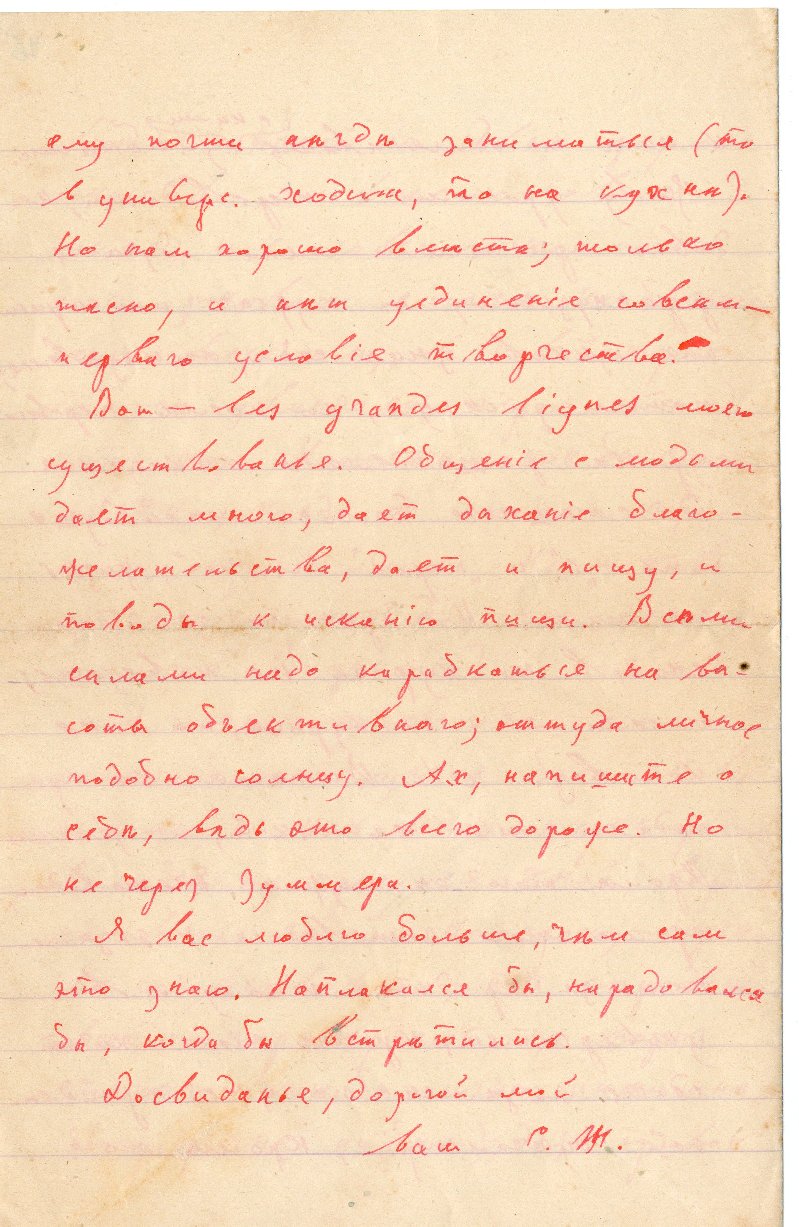 ему почти нѣгдѣ заниматься (то
в универс. ходит, то на кухни).
Но нам хорошо вмѣстѣ; только
тѣсно, и нѣт уединеніе совсѣм —
перваго условіе творчества.
Вот — les grandes lignes моего
существованье. Общеніе с людьми
дает много, дает дыханіе благо-
желательства, дает и пищу, и
поводы к исканію пищи. Всѣми
силами надо карабкаться на вы-
соты объективнаго; оттуда личное
подобно солнцу. Ах, напишите о
себѣ, вѣдь это всего дороже. Но
не через Зуммера.
Я вас люблю больше, чѣм сам
это знаю. Наплакался бы, нарадовался
бы, когда бы встрѣтились.
Досвиданье, дорогой мой
ваш